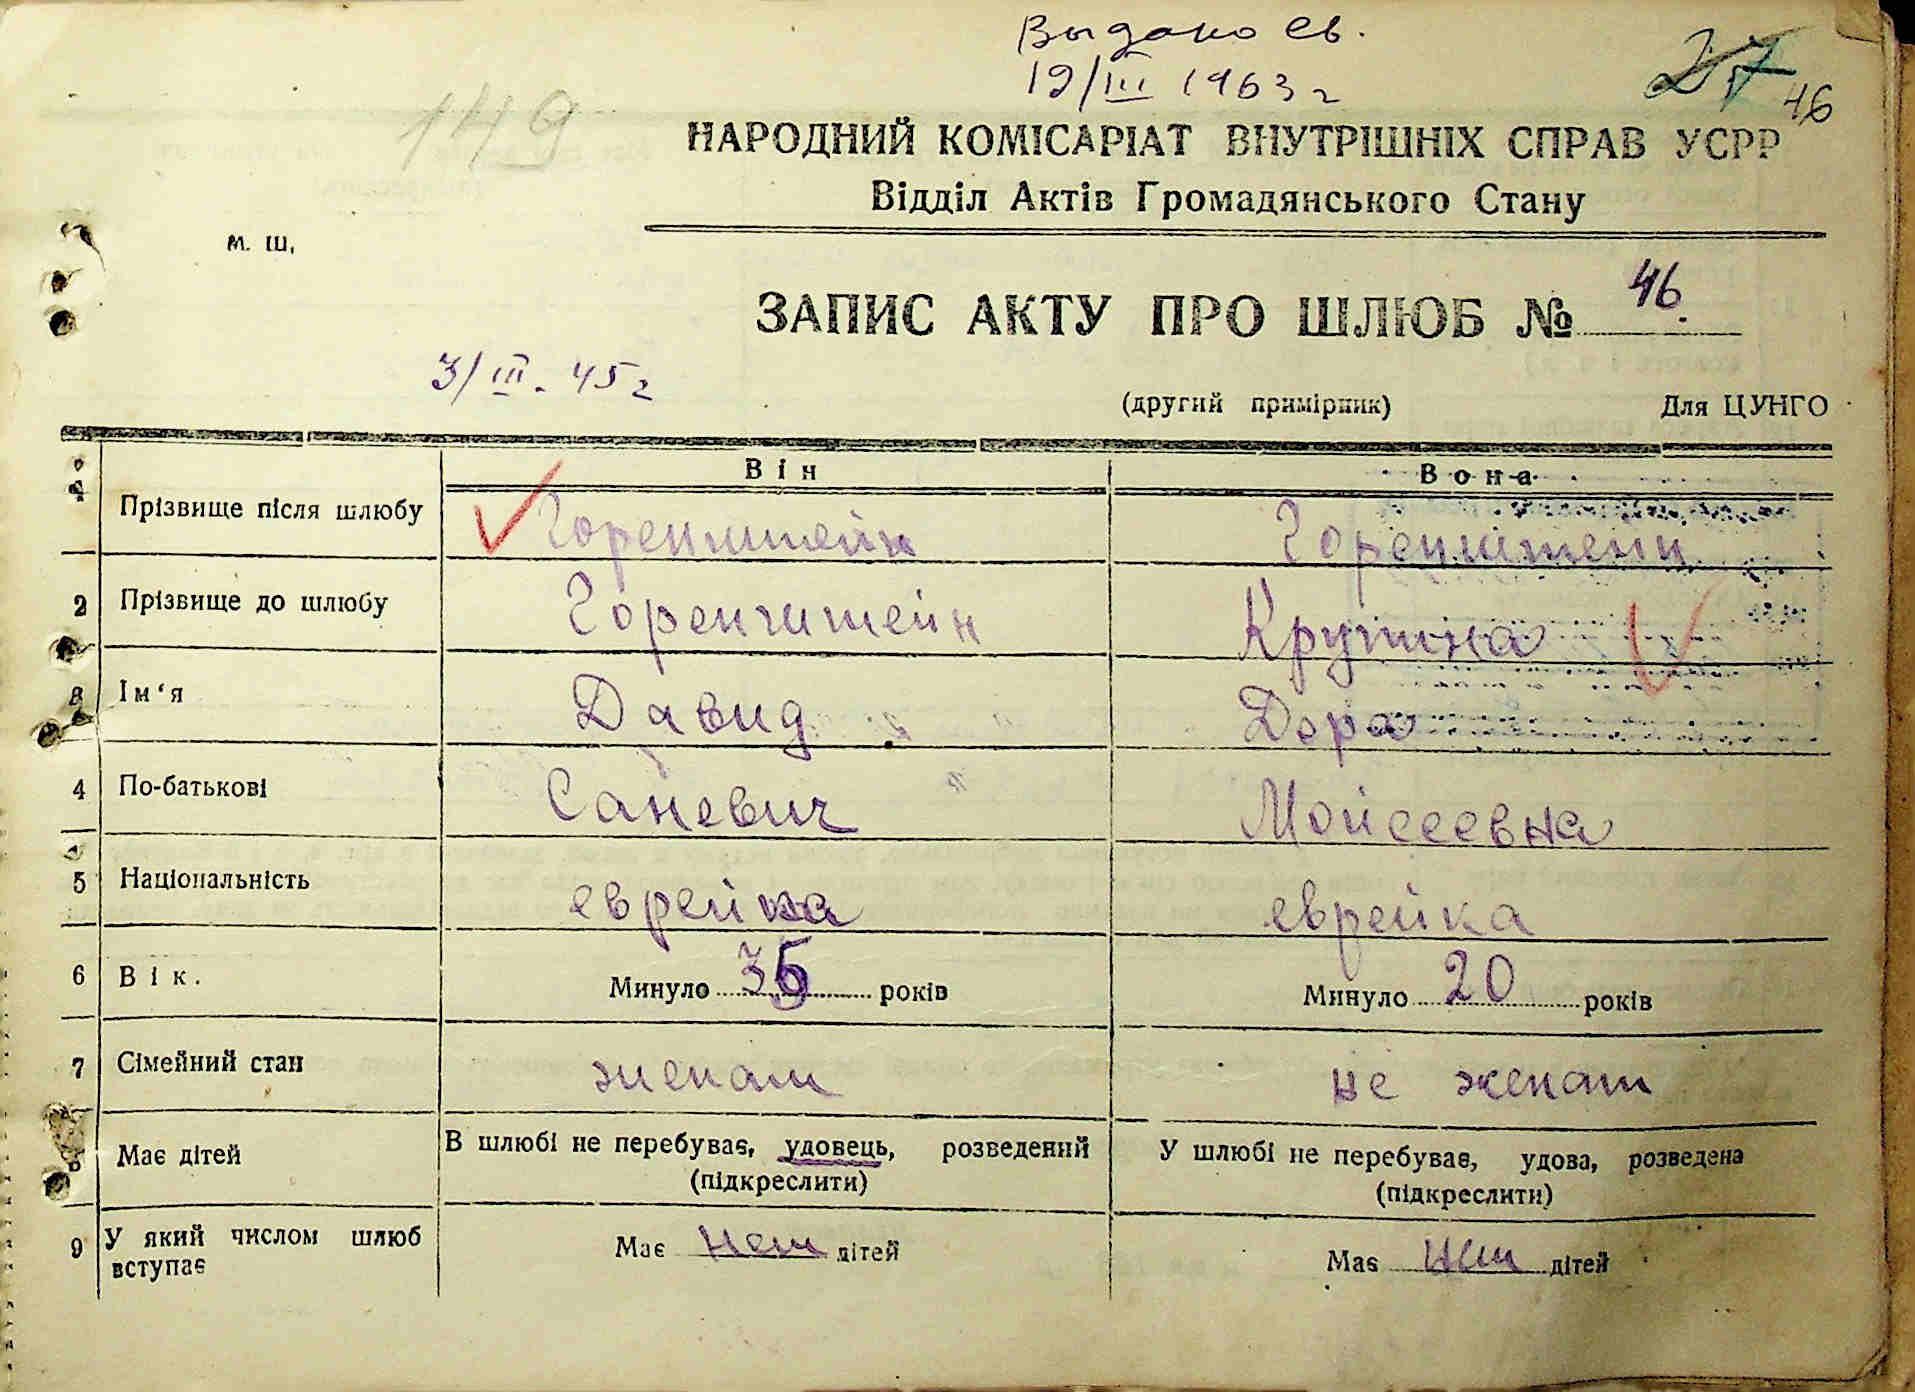 Выдано св.
19/III 1963 г
27
46
149
НАРОДНИЙ КОМІСАРІАТ ВНУТРІШНІХ СПРАВ УСРР
Відділ Актів Громадянського Стану
м. ш.
ЗАПИС АКТУ ПРО ШЛЮБ № 46.
3/III. 45 г
(другий примірник) Для ЦУНГО
Він Вона
1 Прізвище після шлюбу Горенштейн Горенштейн
2 Прізвище до шлюбу Горенштейн Крупина
3 Ім‘я Давид Дора
4 По-батькові Саневич Мойсеевна
5 Національність еврейка еврейка
6 Вік. Минуло 35 років Минуло 20 років
7 Сімейний стан женат не женат
Має дітей В шлюбі не перебуває, удовець, розведений У шлюбі не перебуває, удова, розведена
(підкреслити) (підкреслити)
9 У який числом шлюб вступає Має нет дітей Має нет дітей